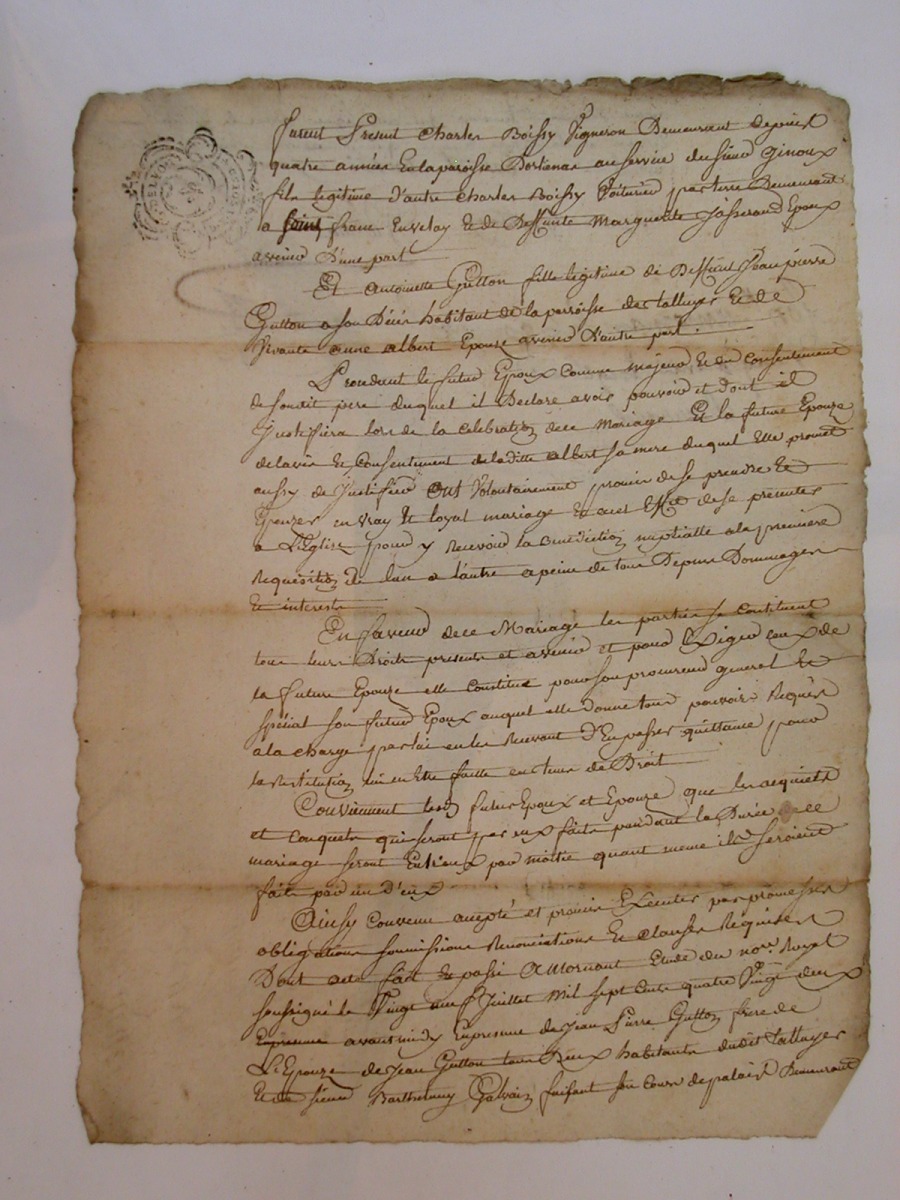 furent Present Charles Boissy Vigneron Demeurant depuis
quatre années En la paroisse Dortenas au service du sieur Giroux
fils legitime d'autre Charles Boissy Voiturier par terre Demeurant
a Saint franc En velay Et de Deffunte Marguerite Jasserand Epoux
a venir D'une part
Et Antoinette Gutton fille legitime de Deffunt Jean pierre
Gutton a son Décès habitant de la parroisse de talluyer Et de
Vivante anne albert Epouze a venir D'autre part.
Procedant le futur Epoux Comme majeur Et du Consentement
de son dit pere duquel il Declare avoir pouvoir et dont il
Justifiera lors de la Celebration de ce Mariage Et la future Epouze
de l'avis Et Consentement de laditte albert sa mere duquel Elle promet
aussy de Justifier Ont Volontairement promis de se prendre Et
Epouzer en vray Et loyal mariage Et a cet Effet de se presenter
a L'Eglise pour y Recevoir la Benediction nuptialle a la premiere
Requisition De l'un a l'autre a peine de tous Depens Dommages
Et interests
En faveur de ce Mariage les parties se Constituent
tous leurs Droits presents et a venir et pour Exiger ceux de
la future Epouze elle Constitue pour son procureur general Et
special son futur Epoux auquel elle donne tous pouvoirs Requis
a la charge par lui en les Recevant d'En passer quittance pour
la Restitution lui en Etre faitte en tems de Droit
Conviennent lesd futurs Epoux et Epouze que les acquiets
et conquets qui seront par eux faits pendant la Durée de ce
mariage seront Entr'eux par moitié quant meme ils seroient
faits par un D'eux
Ainsy Convenu accepté et promis Executer par promesses
obligations soumissions Renonciations Et Clauses Requises
Dont acte fait Et passé A Mornant Etude du nore. Royal
soussigné le Vingt un Juillet Mil Sept Cents quatre Vingt deux
avant midy En presence de Jean Pierre Gutton frere de
L'Epouze de Jean Gutton tous Deux habitants dudit Talluyer
Et de sieur Barthelemy Galvain faisant son Cours de palais Demeurant